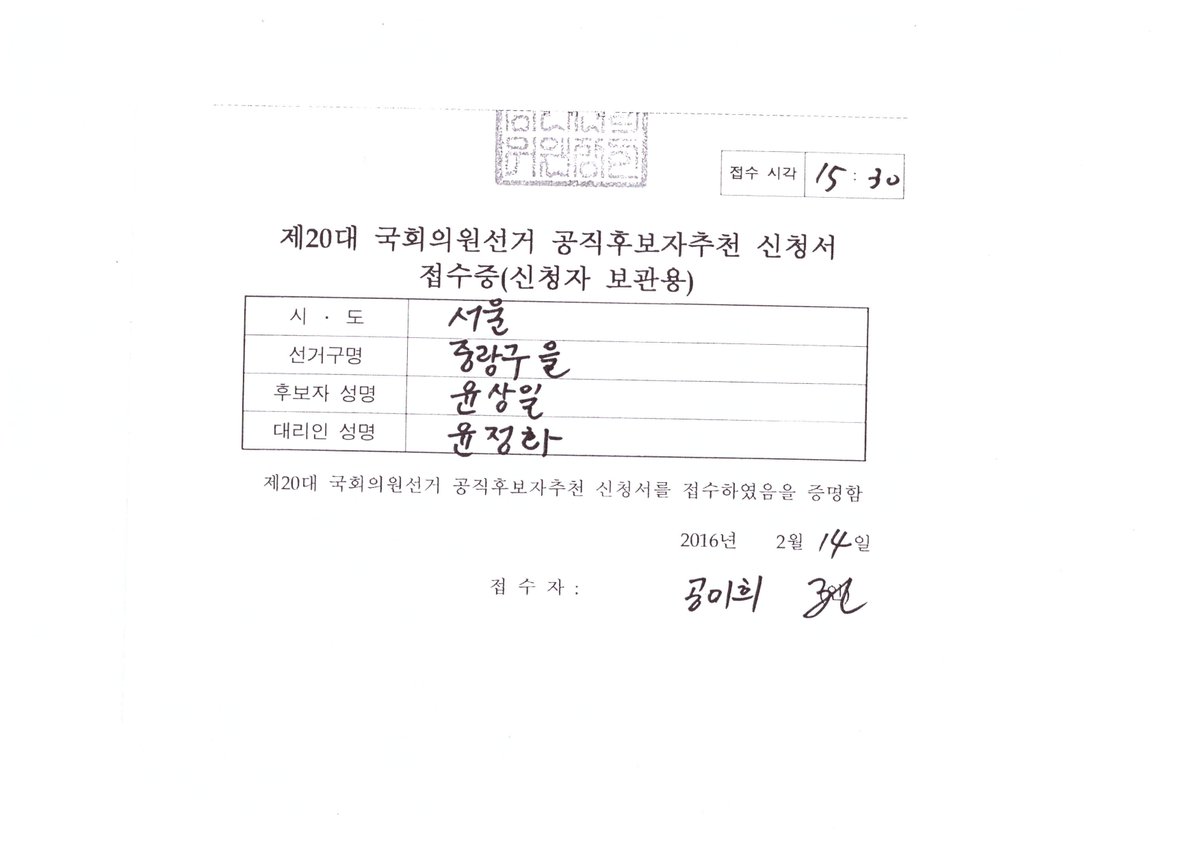 접수 시각 15 : 30
제20대 국회의원선거 공직후보자추천 신청서
접수증(신청자 보관용)
시 · 도 서울
선거구명 중랑구 을
후보자 성명 윤상일
대리인 성명 윤정화
제20대 국회의원선거 공직후보자추천 신청서를 접수하였음을 증명함
2016년 2월 14일
접 수 자 : 공미희